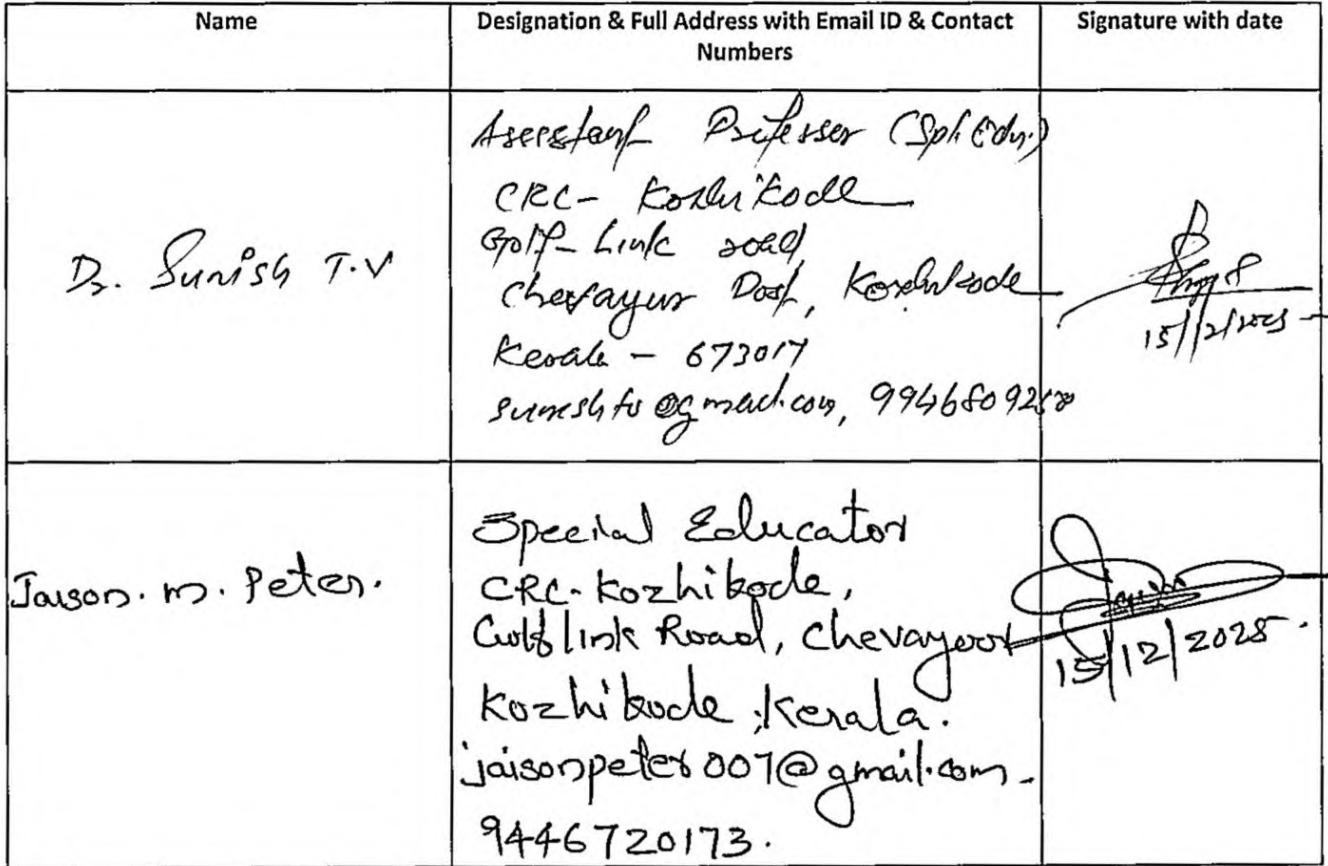 Name
Designation & Full Address with Email ID & Contact
Numbers
Signature with date
Dr. Sunish T.V
Assistant Professer (Spl. Edn.)
CRC- Kozhikode
Golf- Link road,
Chevayur Post, Kozhikode
Kerala - 673017
@gmail.com,
15/12/2025
Jaison. M. Peter.
Special Educator
CRC- Kozhikode,
Golf link Road, Chevayoor
Kozhikode, Kerala.
jaisonpeter007@gmail.com
9446720173.
15/12/2025.